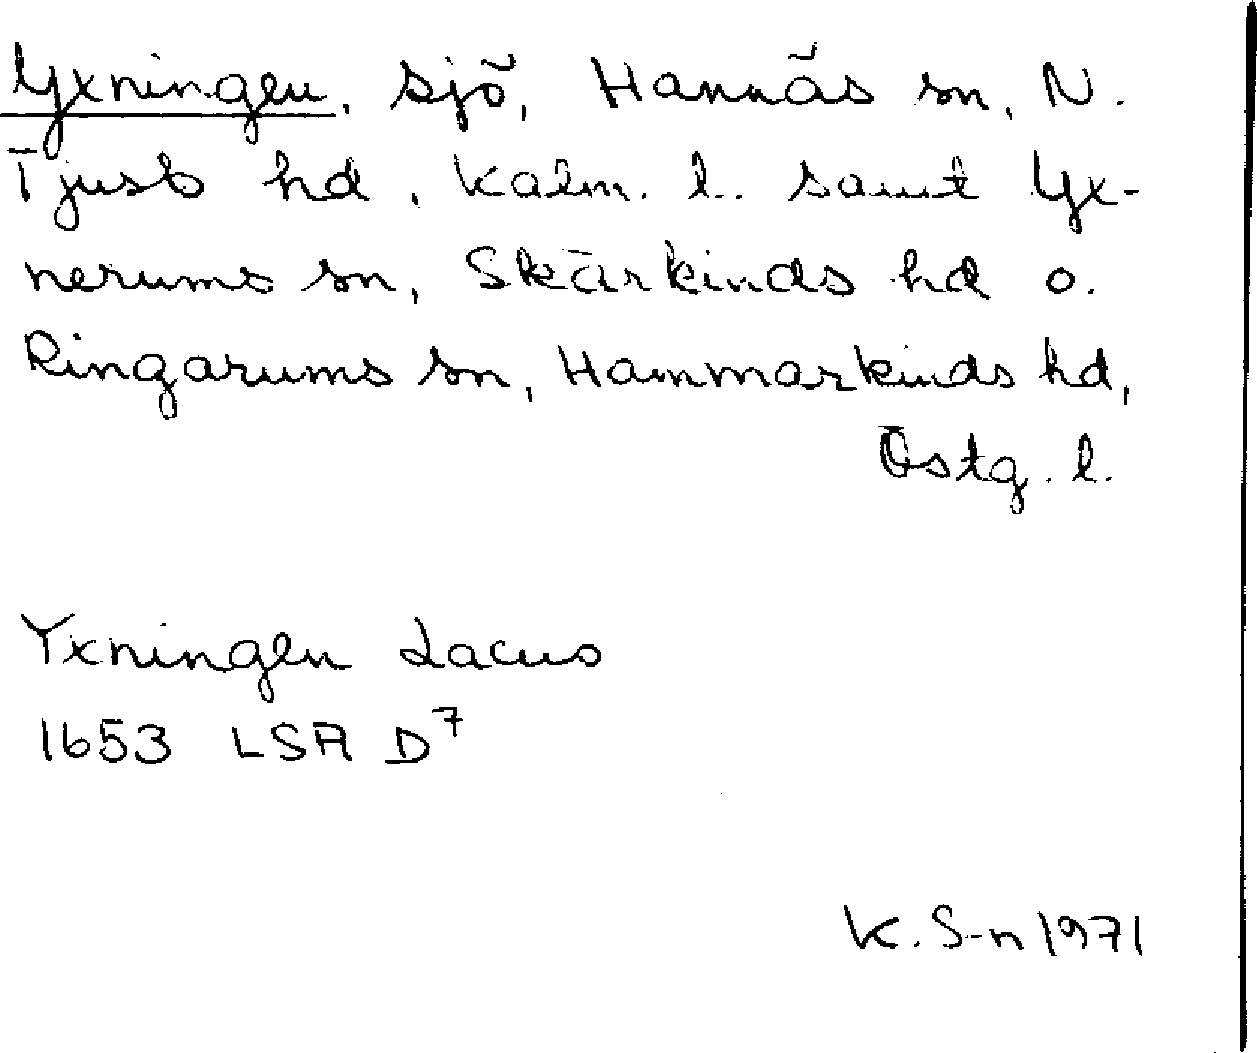 Yxningen, sjö, Hannäs sn, N.
Tjusts hd, Kalm. l. samt Yx-
nerums sn, Skärkinds hd o.
Ringarums sn, Hammarkinds hd,
Östg. l.
Yxningen Lacus
1653 LSA D⁷
K. S-n 1971